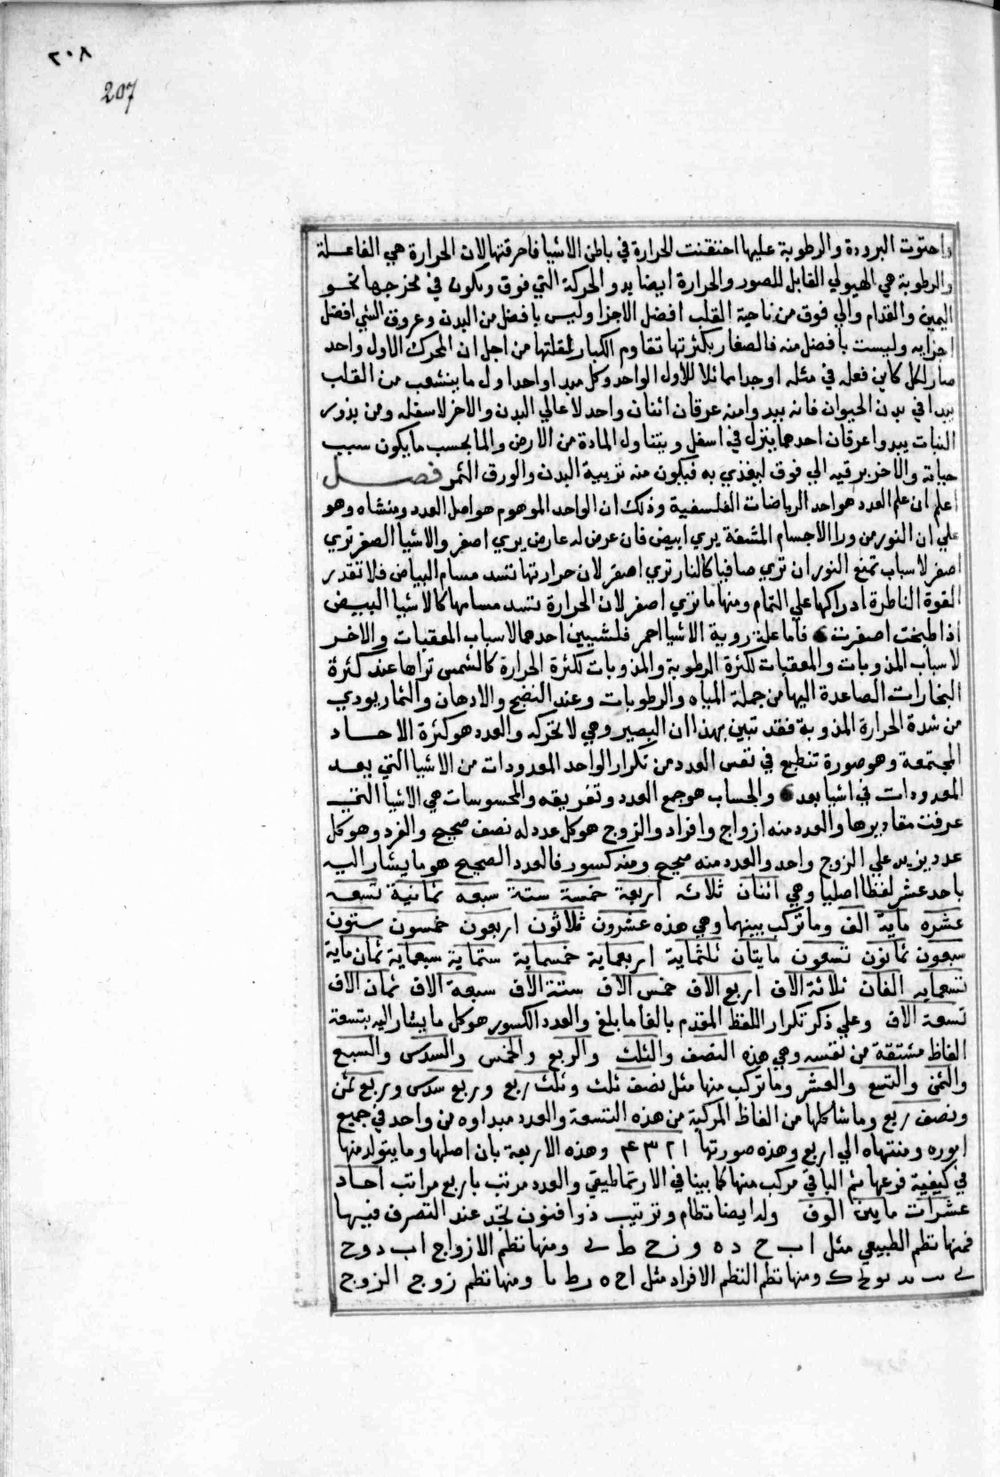 ٢٠٨
207
واحتوت البرودة والرطوبة عليها اختنقت الحرارة في باطن الاشيا فاحرقتها لان الحرارة هي الفاعلة
والرطوبة هي الهيولي القابل للصور والحرارة ايضا بدو الحركة التي فوق ويكون في مخرجها نحو
اليمين والقدام والي فوق من ناحية القلب افضل الاجزا وليس بافضل من البدن وعروق الشي افضل
اجزايه وليست بافضل منه فالصغار بكثرتها تقاوم الكبار لقلتها من اجل ان المحرك الاول واحد
صار لكل كاين فعله في مثله اوجدا مماثلا للاول الواحد وكل مبدا واحد اول ما ينشعب من القلب
يبدا في بدن الحيوان فانه يبدوا منه عرقان اثنان واحد لاعالي البدن والاخر لاسفله ومن بذور
النبات يبدوا عرقان احدهما ينزل في اسفل ويتناول المادة من الارض والما بحسب ما يكون سبب
حياته والاخر يرقيه الي فوق ليغذي به فيكون منه تربية البدن والورق الثمر فصل
اعلم ان علم العدد هو احد الرياضات الفلسفية وذلك ان الواحد الموهوم هو اصل العدد ومنشاه وهو
علي ان النور من ورا الاجسام المشفة يري ابيض فان عرض له عارض يري اصفر والاشيا الصفر تري
اصفر لاسباب تمنع النور ان تري صافيا كالنار تري اصفر لان حرارتها تسد مسام البياض فلا تقدر
القوة الناظرة ادراكها علي التمام ومنها ما تري اصفر لان الحرارة تسد مسامها كالاشيا البيض
اذا طبخت اصفرت فاما علة روية الاشيا احمر فلشيين احدهما لاسباب المعقبات والاخر
لاسباب المذوبات والمعقبات لكثرة الرطوبة والمذوبات لكثرة الحرارة كالشمس تراها عند كثرة
البخارات الصاعدة اليها من جملة المياه والرطوبات وعند النضج والادهان والثمار يودي
من شدة الحرارة المذوبة فقد تبين بهذا ان البصير وهي لا تحركه والعدد هو كثرة الاحاد
المجتمعة وهو صورة تنطبع في نفس العدد من تكرار الواحد المعدودات من الاشيا التي يعد
المعدودات في اشيا بعد والحساب هو جمع العدد وتفريقه والمحسوسات هي الاشيا التي
عرفت مقاديرها والعدد منه ازواج وافراد والزوج هو كل عدد له نصف صحيح والفرد وهو كل
عدد يزيد علي الزوج واحد والعدد منه صحيح ومنه كسور فالعدد الصحيح هو ما يشار اليه
باحد عشر لفظا اصليا وهي اثنان ثلاثه اربعة خمسة ستة سبعه ثمانية تسعه
عشره ماية الف وما تركب بينهما وهي هذه عشرون ثلاثون اربعون خمسون ستون
سبعون ثمانون تسعون مايتان ثلثماية اربعماية خمسماية ستماية سبعماية ثمان ماية
تسعمايه الفان ثلاثة الاف اربع الاف خمس الاف ستة الاف سبعة الاف ثمان الاف
تسعة الاف وعلي ذكر تكرار اللفظ المقدم بالغا ما بلغ والعدد الكسور هو كل ما يشار اليه بتسعة
الفاظ مشتقة من نفسه وهي هذه النصف والثلث والربع والخمس والسدس والسبع
والثمن والتسع والعشر وما تركب منها مثل نصف ثلث وثلث ربع وربع سدس وربع ثمن
ونصف ربع وما شاكلها من الفاظ المركبة من هذه التسعة والعدد مبداوه من واحد في جميع
اموره ومنتهاه الي اربع وهذه صورتها ١ ٢ ٣ ٤ وهذه الاربعة بان اصلها وما يتولد منها
في كيفية فرعها ثم الباقي مركب منها كما بينا في الارتماطيقي والعدد مرتب باربع مراتب احاد
عشرات مايين الوف وله ايضا نظام وترتيب ذوا فنون تجد عند التصرف فيها
فمنها نظم الطبيعي مثل ا ب ج د ه و ز ح ط ي ومنها نظم الازواج ا ب د و ح
ومنها نظم النظم الافراد مثل ا ج ه ز ط يا ومنها نظم زوج الزوج